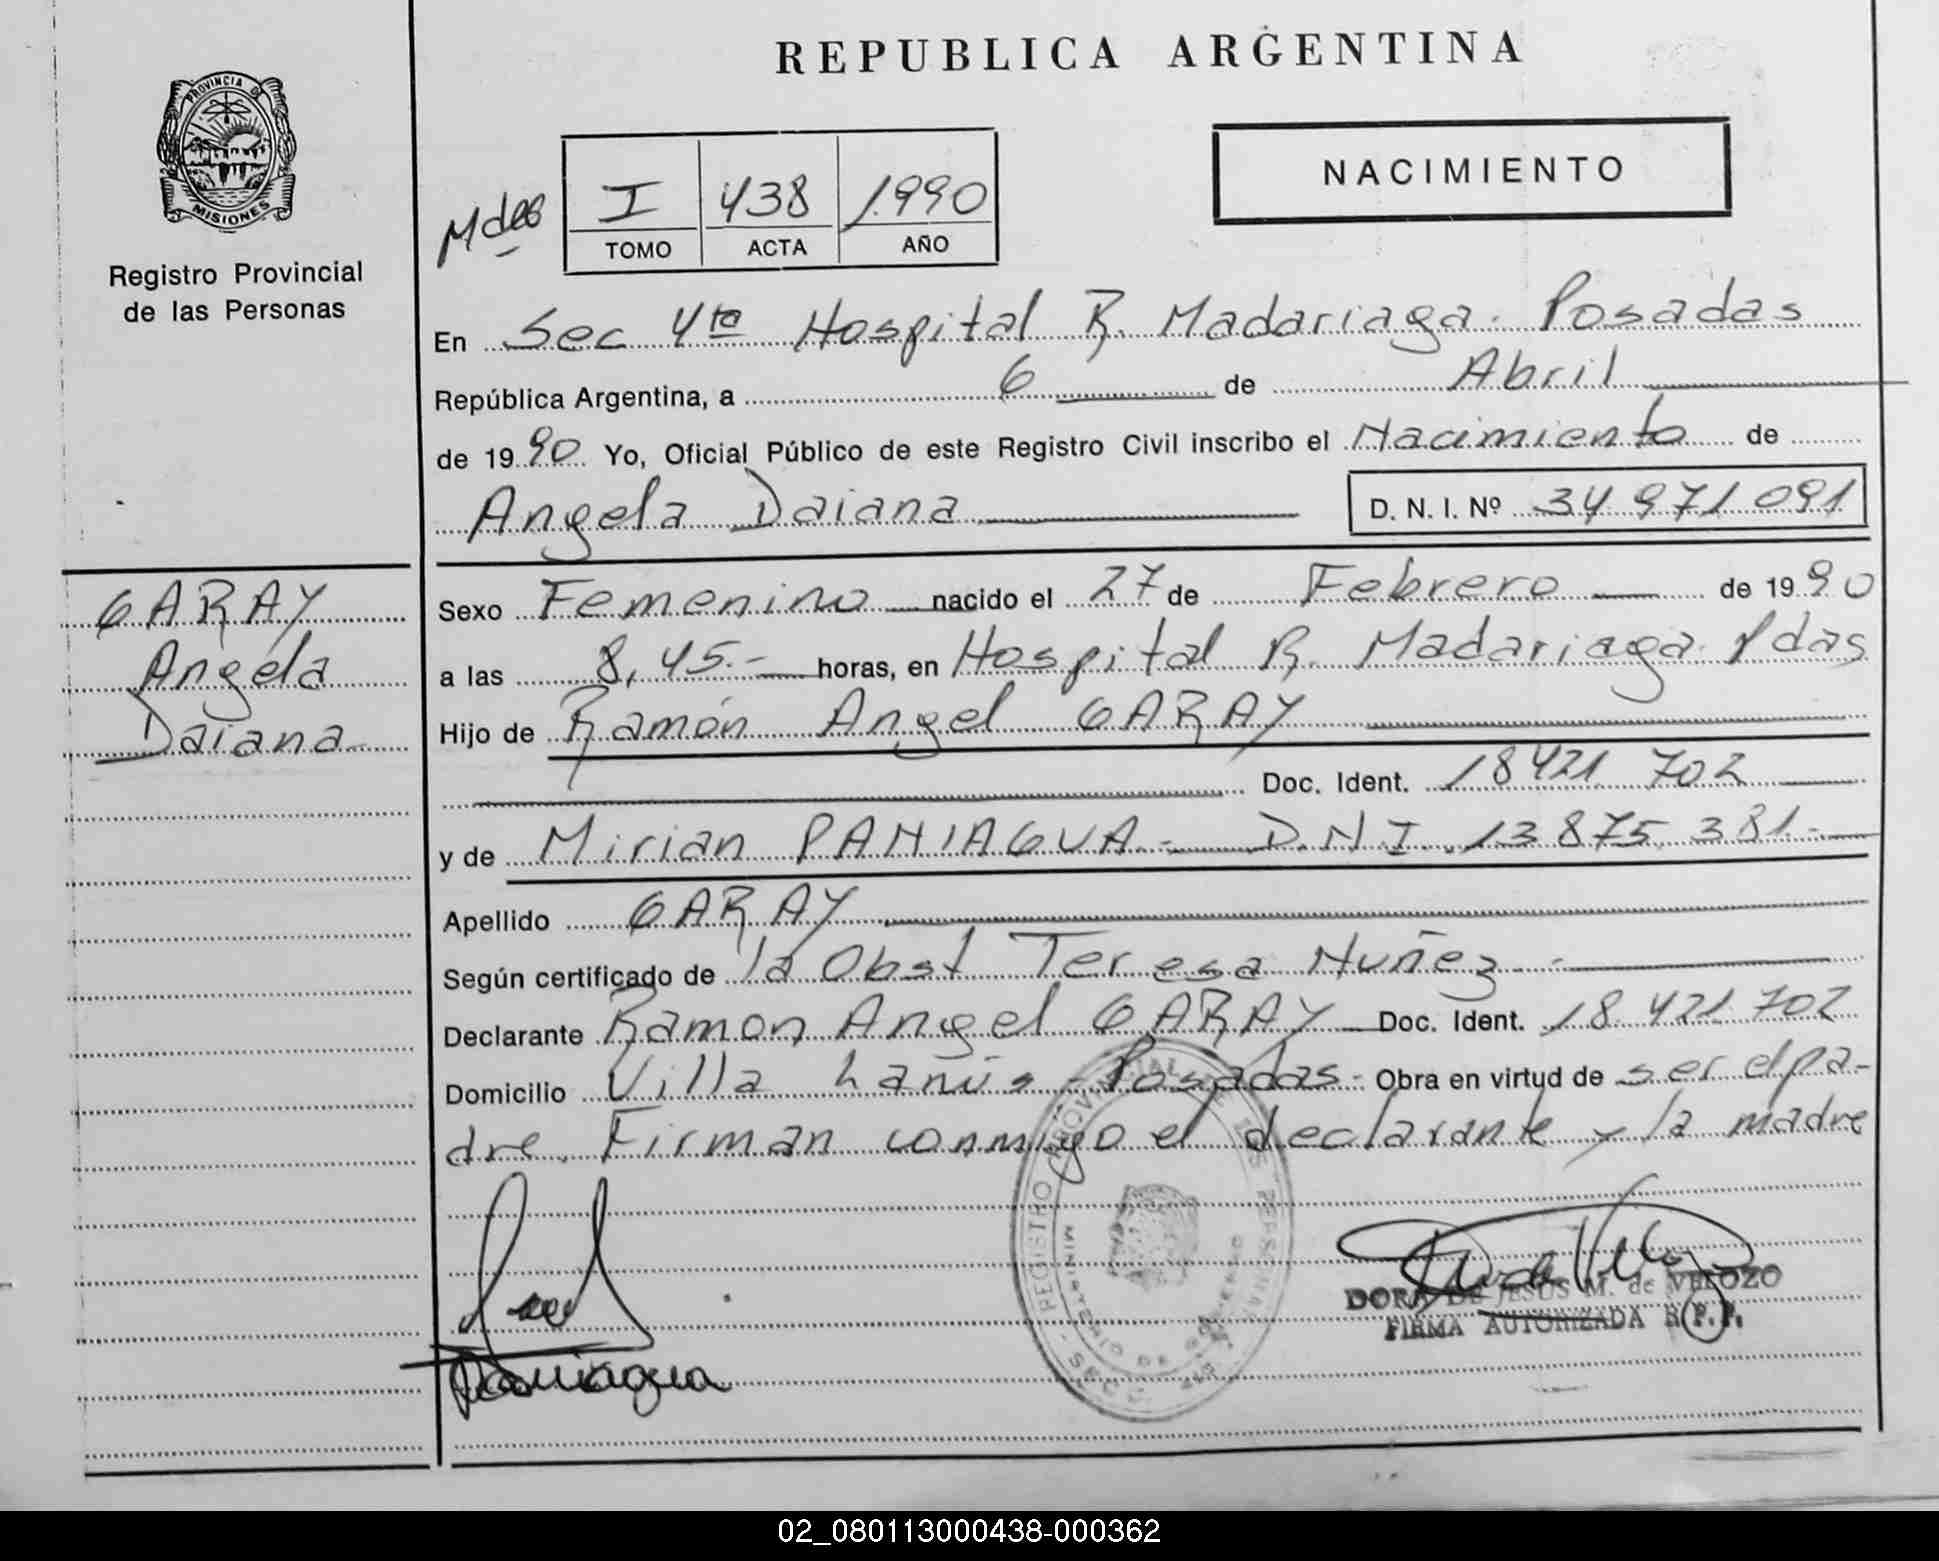 REPUBLICA ARGENTINA
PROVINCIA DE
MISIONES
Registro Provincial
de las Personas
NACIMIENTO
I 438 1.990
TOMO ACTA AÑO
En Sec 4ta Hospital R. Madariaga. Posadas
República Argentina, a 6 de Abril
de 1990 Yo, Oficial Público de este Registro Civil inscribo el Nacimiento de
Angela Daiana D. N. I. Nº 34 971 091
GARAY
Angela
Daiana
Sexo Femenino nacido el 27 de Febrero de 1990
a las 8,45.- horas, en Hospital R. Madariaga. Pdas
Hijo de Ramón Angel GARAY
Doc. Ident. 18 421 702
y de Mirian PANIAGUA.- D.N.I. 13 875 381.-
Apellido GARAY
Según certificado de la Obst Teresa Nuñez.-
Declarante Ramon Angel GARAY Doc. Ident. 18 421 702
Domicilio Villa Lanús - Posadas. Obra en virtud de ser el pa-
dre. Firman conmigo el declarante y la madre
REGISTRO PROVINCIAL DE LAS PERSONAS
MINISTERIO DE GOBIERNO
Paniagua
DORA DE JESUS M. de VELOZO
FIRMA AUTORIZADA R.P.P.
02_080113000438-000362